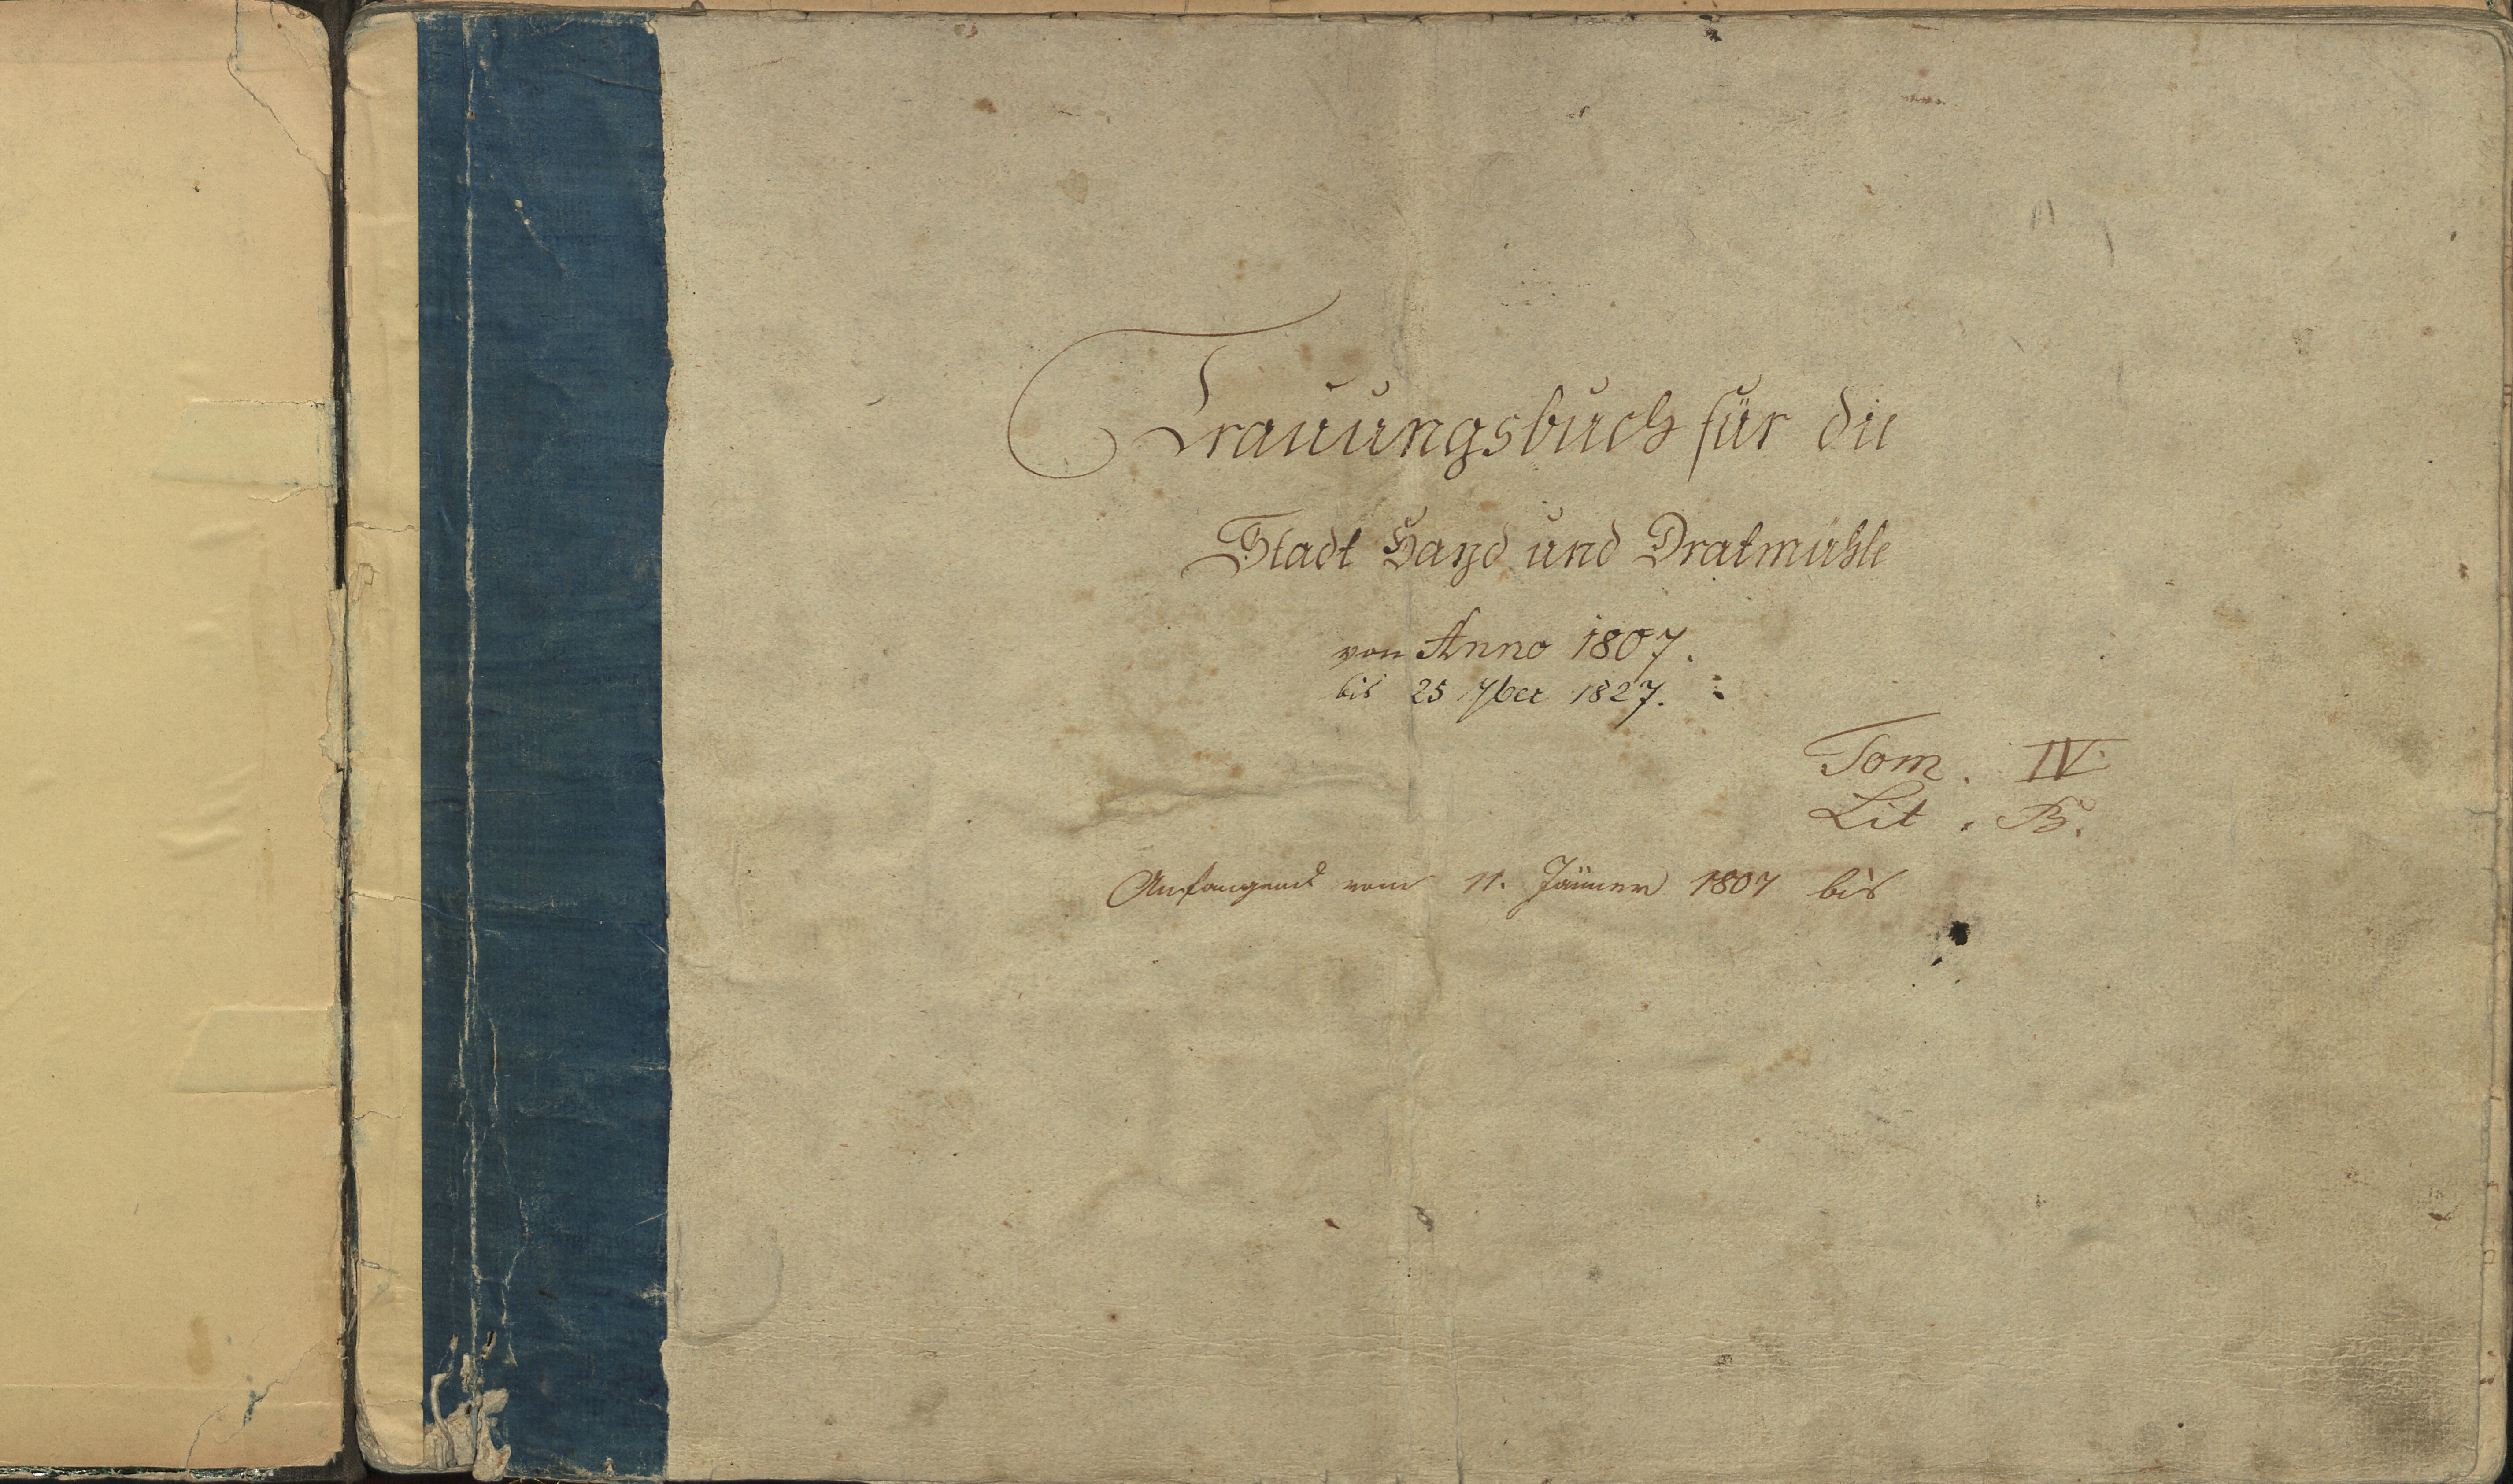 Trauungsbuch für die
Stadt Hayd und Dratmühle
von Anno 1807.
bis 25 7ber 1827.
Tom. IV.
Lit. B.
Anfangend vom 11. Jänner 1807 bis